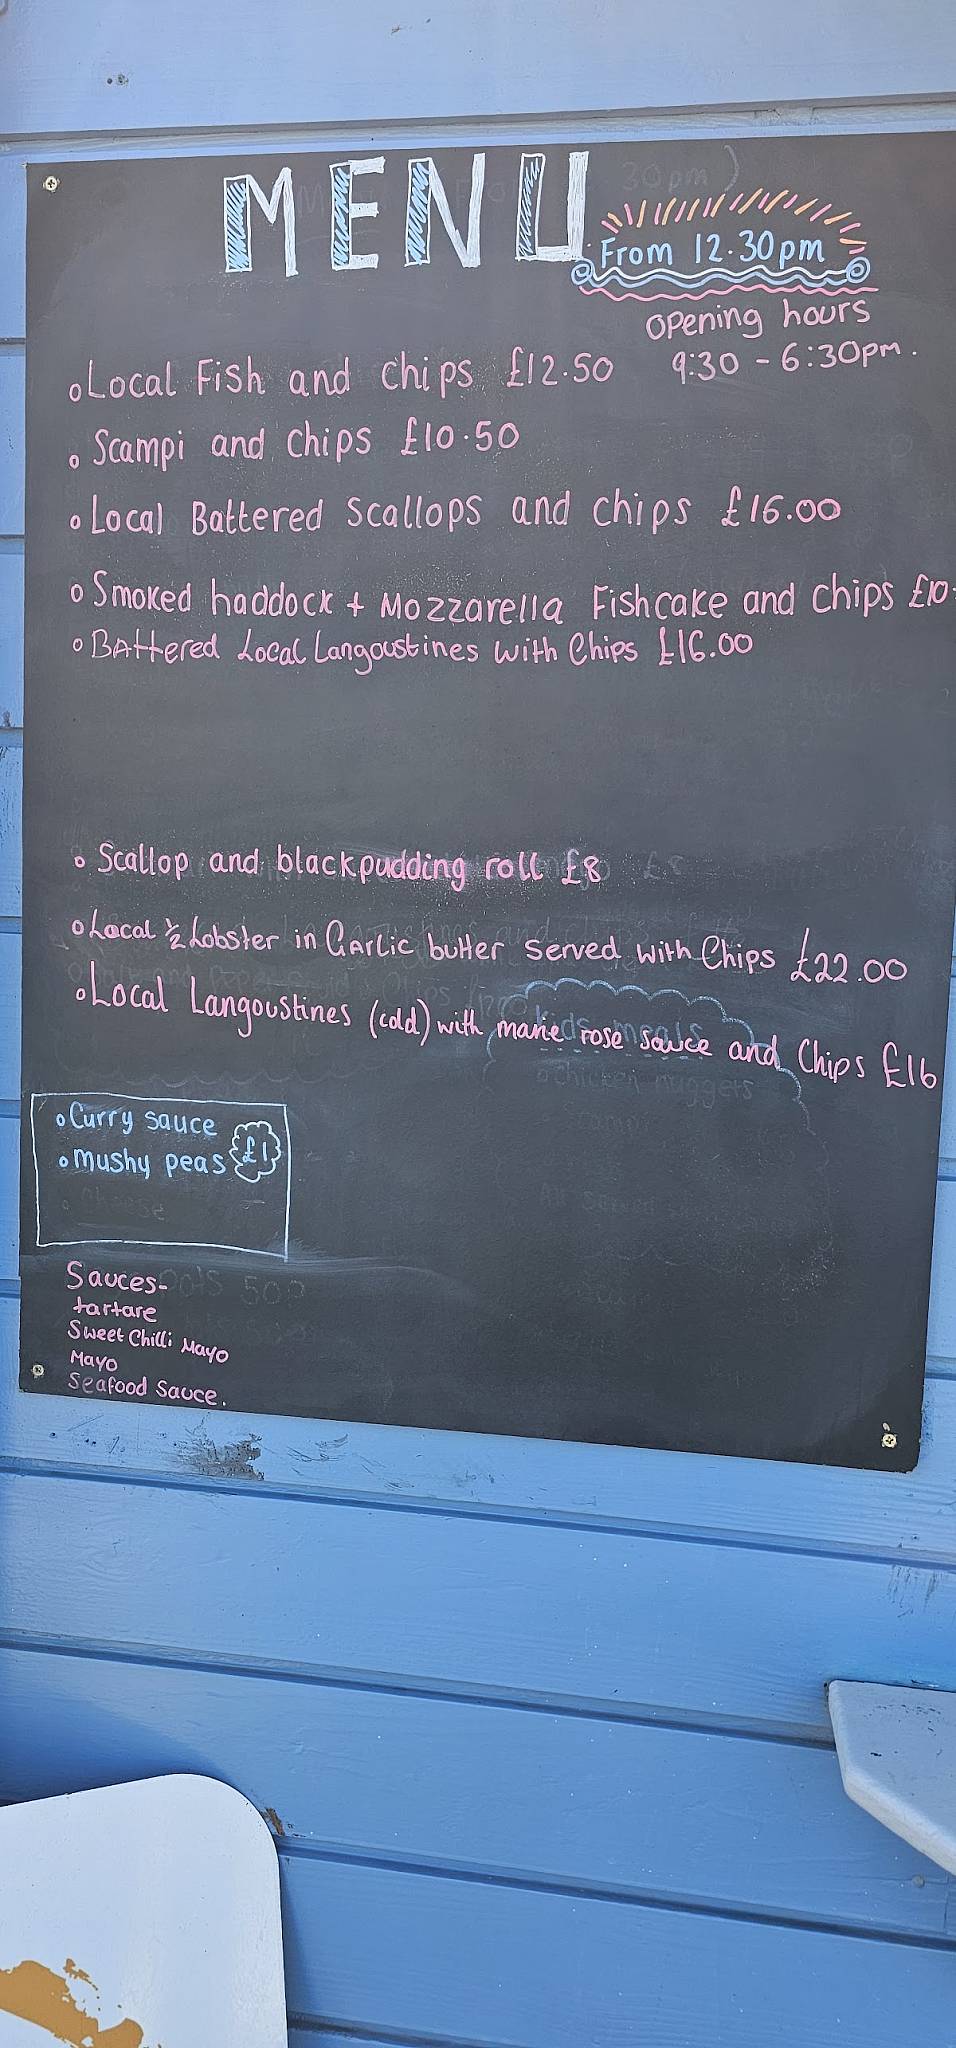 MENU
From 12.30pm
opening hours
9:30 - 6:30pm.
Local Fish and chips £12.50
Scampi and chips £10.50
Local Battered Scallops and chips £16.00
Smoked haddock + Mozzarella Fishcake and chips £10
Battered Local Langoustines with Chips £16.00
Scallop and blackpudding roll £8
Local 1/2 Lobster in Garlic butter served with Chips £22.00
Local Langoustines (cold) with marie rose sauce and Chips £16
kids meals
chicken nuggets
Curry sauce
mushy peas £1
cheese
Sauces-
tartare
Sweet Chilli Mayo
Mayo
Seafood Sauce.